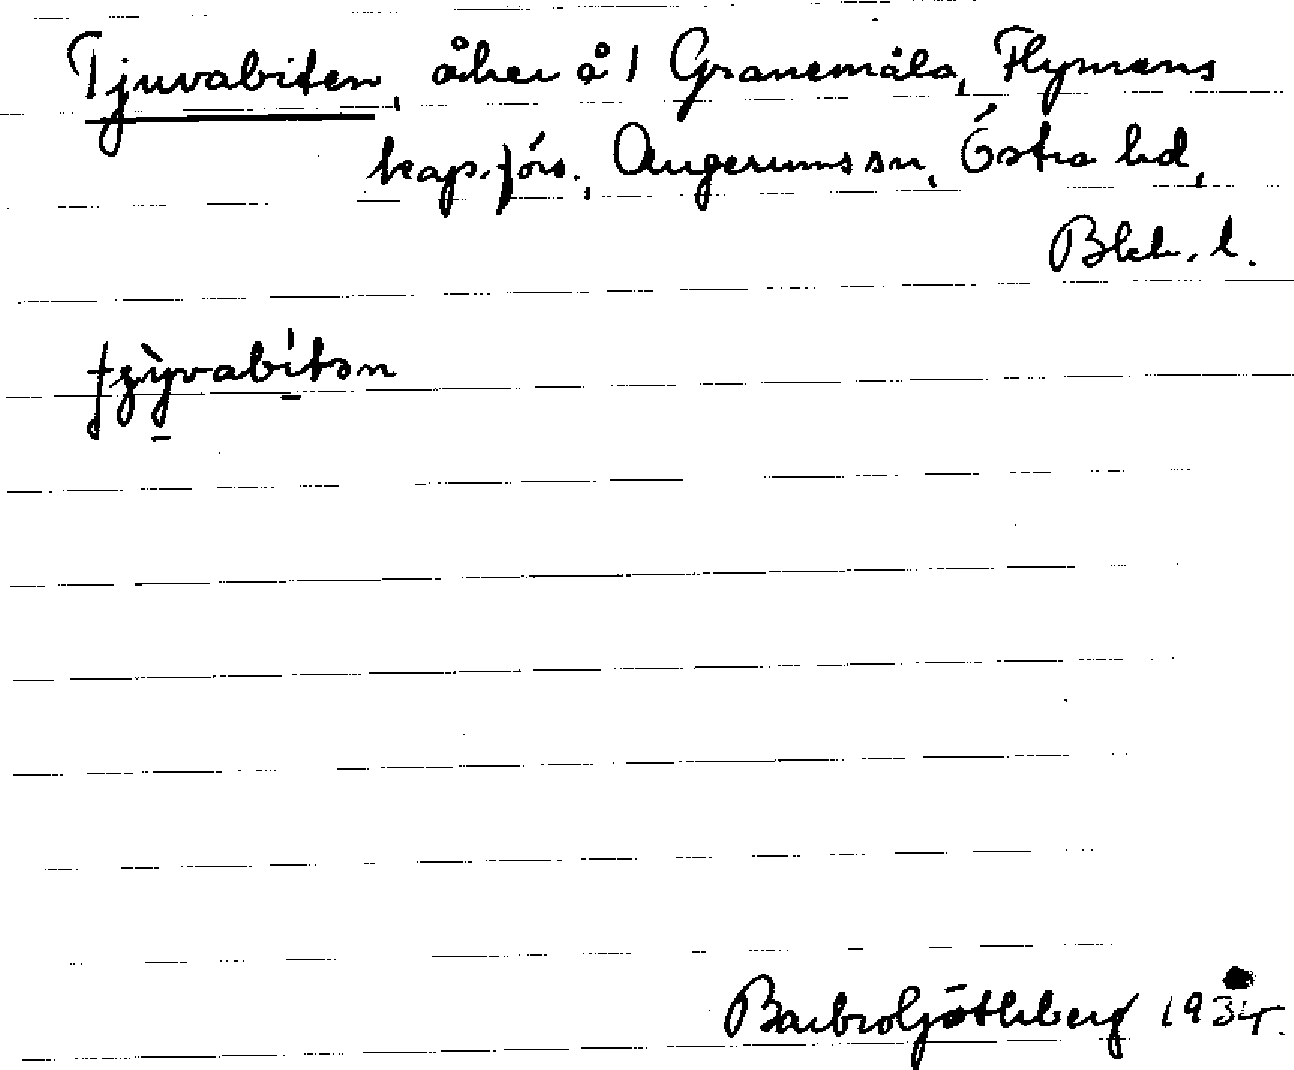 Tjuvabiten, åker å 1 Granemåla, Flymens
kap.förs., Augerums sn, Östra hd,
Blek. l.
Barbro Götherberg 1934.